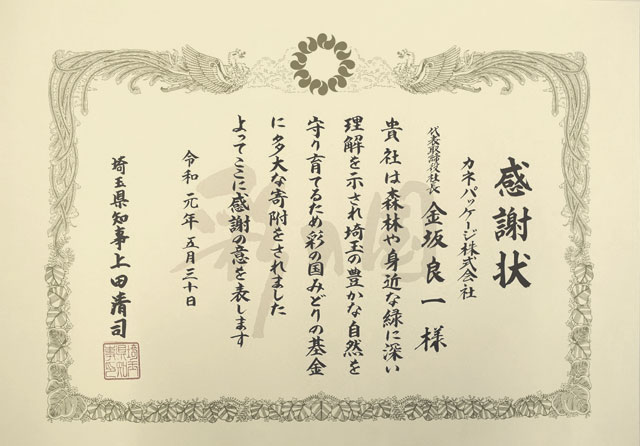 感謝状
カネパッケージ株式会社
代表取締役社長 金坂良一様
貴社は森林や身近な緑に深い
理解を示され埼玉の豊かな自然を
守り育てるため彩の国みどりの基金
に多大な寄附をされました
よってここに感謝の意を表します
令和元年五月三十日
埼玉県知事上田清司
埼玉県知事印
彩の国